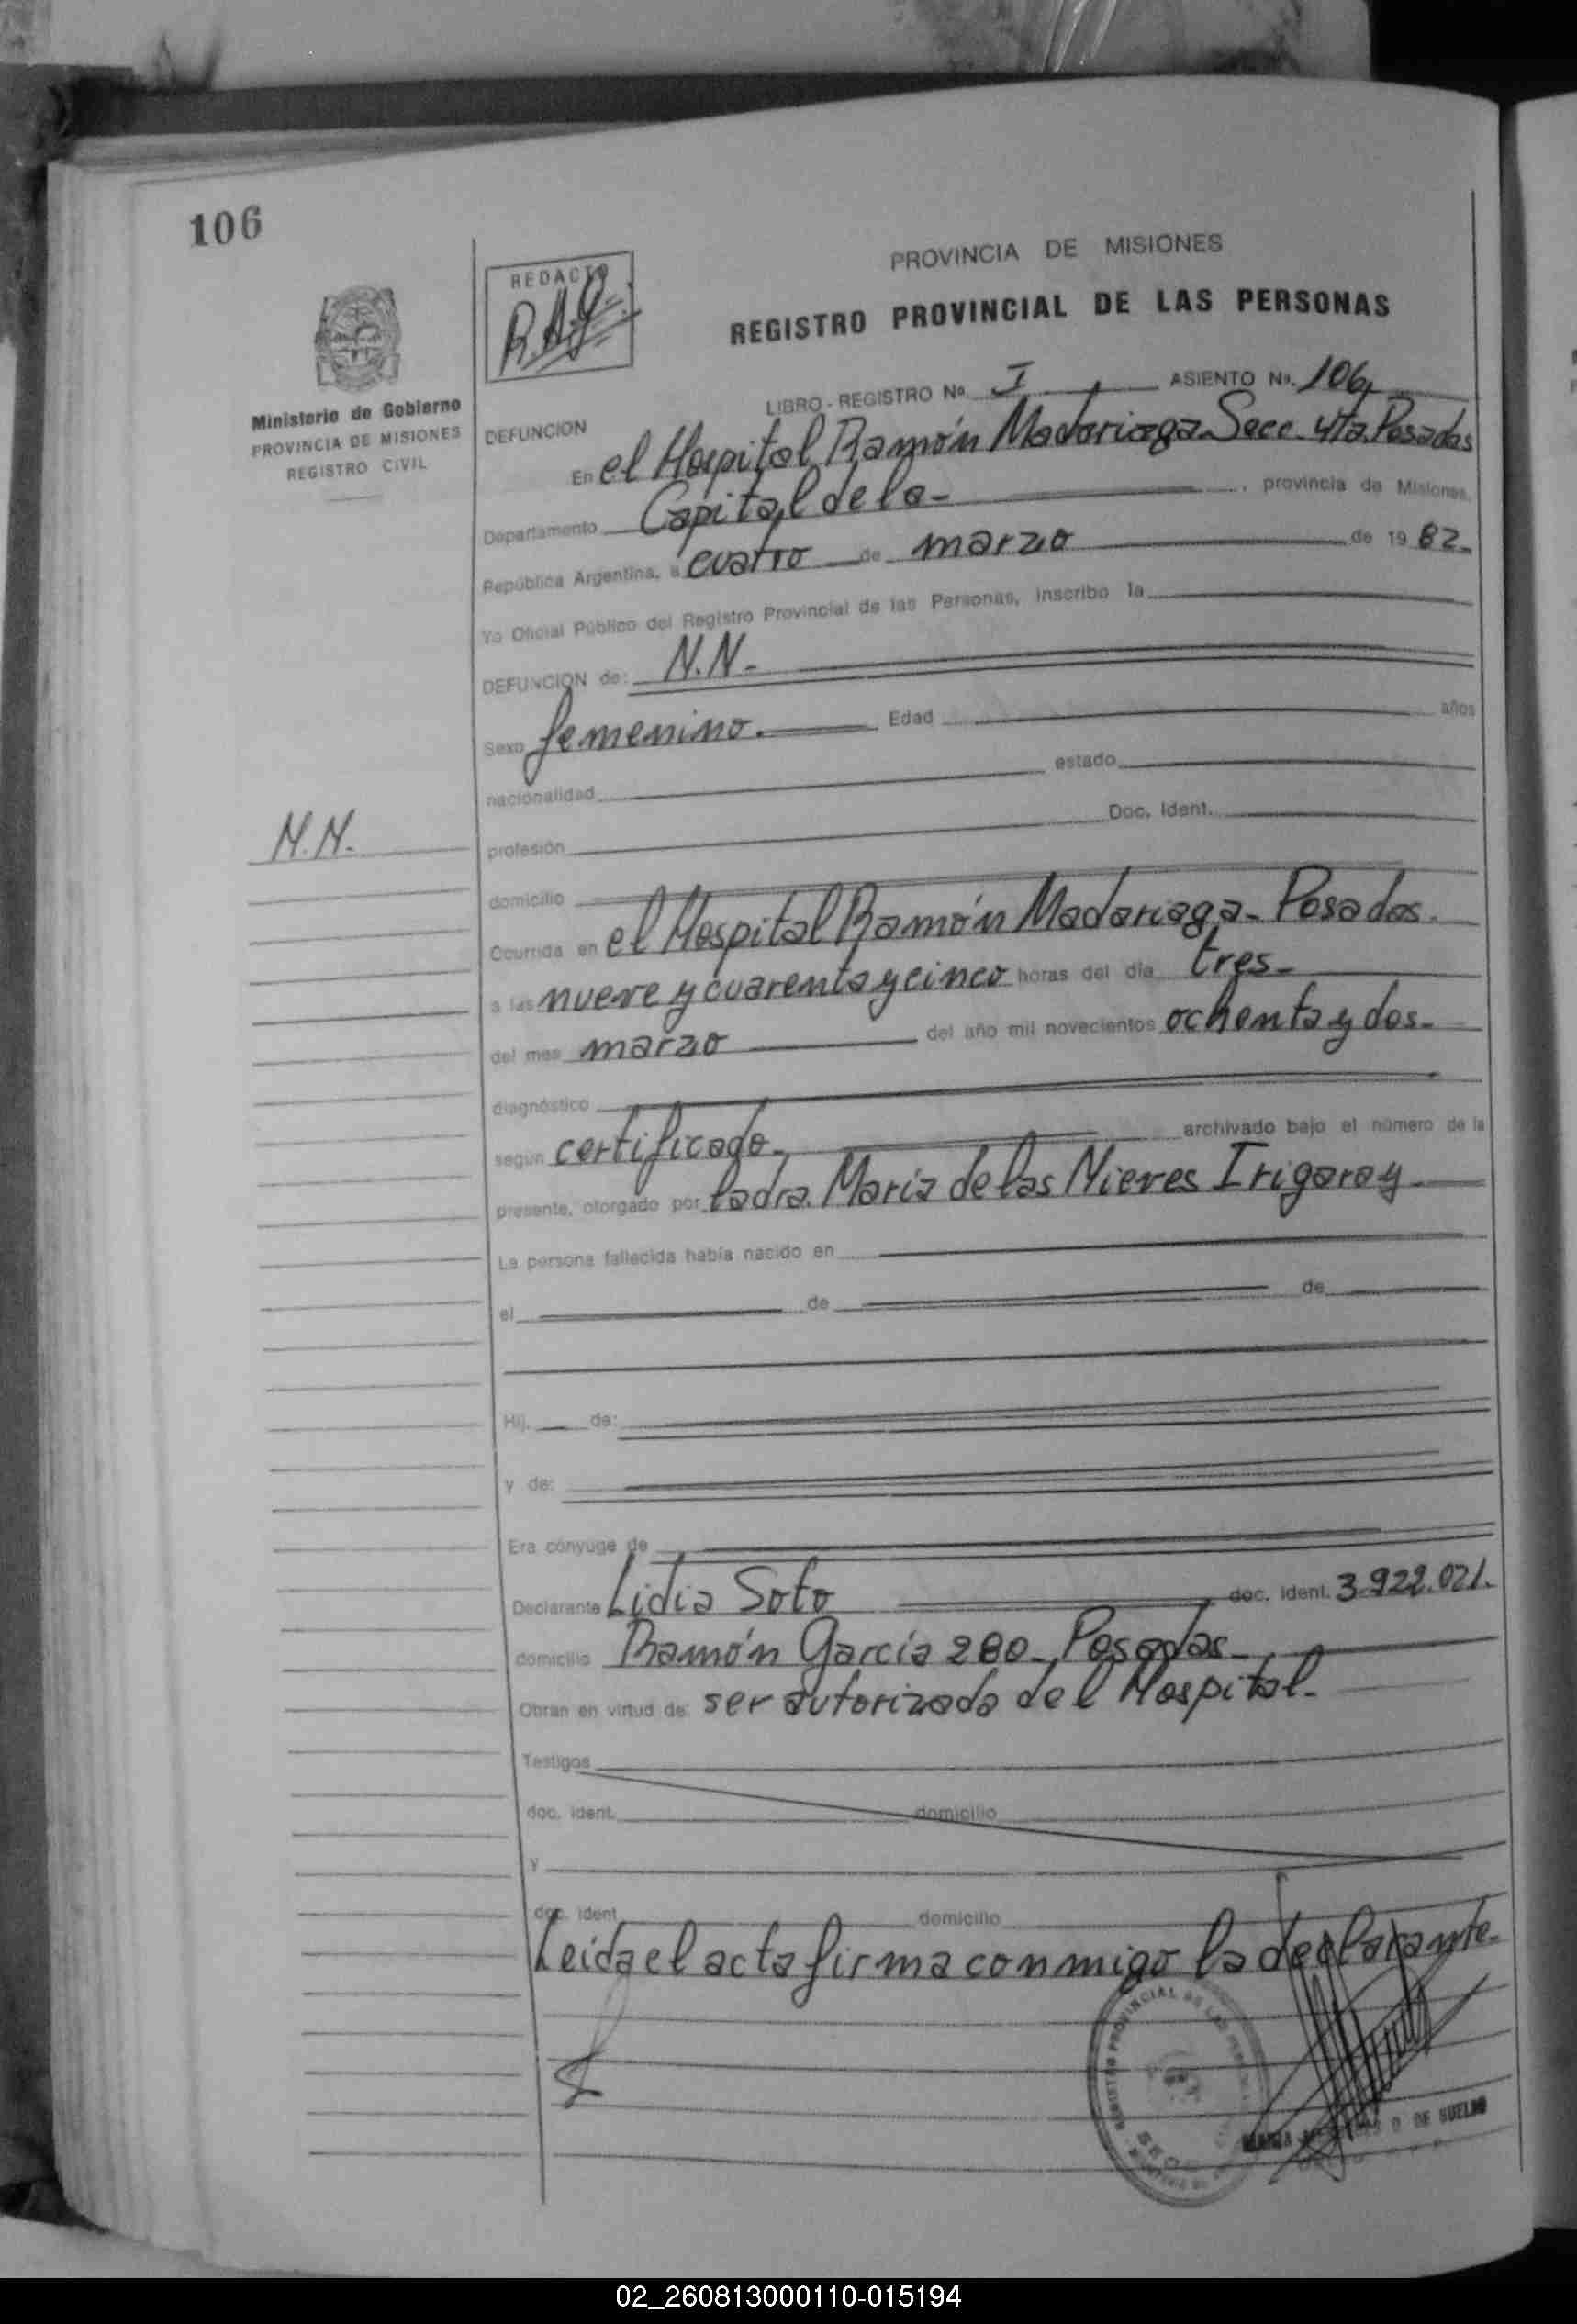 106
REDACTO
R.A.G.
PROVINCIA DE MISIONES
REGISTRO PROVINCIAL DE LAS PERSONAS
Ministerio de Gobierno
PROVINCIA DE MISIONES
REGISTRO CIVIL
LIBRO - REGISTRO No. I ASIENTO No. 106
DEFUNCION
En el Hospital Ramón Madariaga Secc. 4ta. Posadas
Departamento Capital de la - , provincia de Misiones,
República Argentina, a cuatro de marzo de 19 82.
Yo Oficial Público del Registro Provincial de las Personas, inscribo la
DEFUNCION de: N.N.-
Sexo femenino. Edad años
nacionalidad estado
N.N.
profesión Doc. Ident.
domicilio
Ocurrida en el Hospital Ramón Madariaga - Posadas.
a las nueve y cuarenta y cinco horas del día tres-
del mes marzo del año mil novecientos ochenta y dos-
diagnóstico
según certificado- archivado bajo el número de la
presente, otorgado por la dra. María de las Nieves Irigaray
La persona fallecida había nacido en
el de de
Hij. de:
y de:
Era cónyuge de
Declarante Lidia Soto doc. ident. 3.922.021.
domicilio Ramón García 280 - Posadas-
Obran en virtud de ser autorizada del Hospital-
Testigos
doc. ident. domicilio
y
doc. ident domicilio
Leida el acta firma conmigo la declarante-
REGISTRO PROVINCIAL DE LAS
MARIA D DE SUELDO
02_260813000110-015194